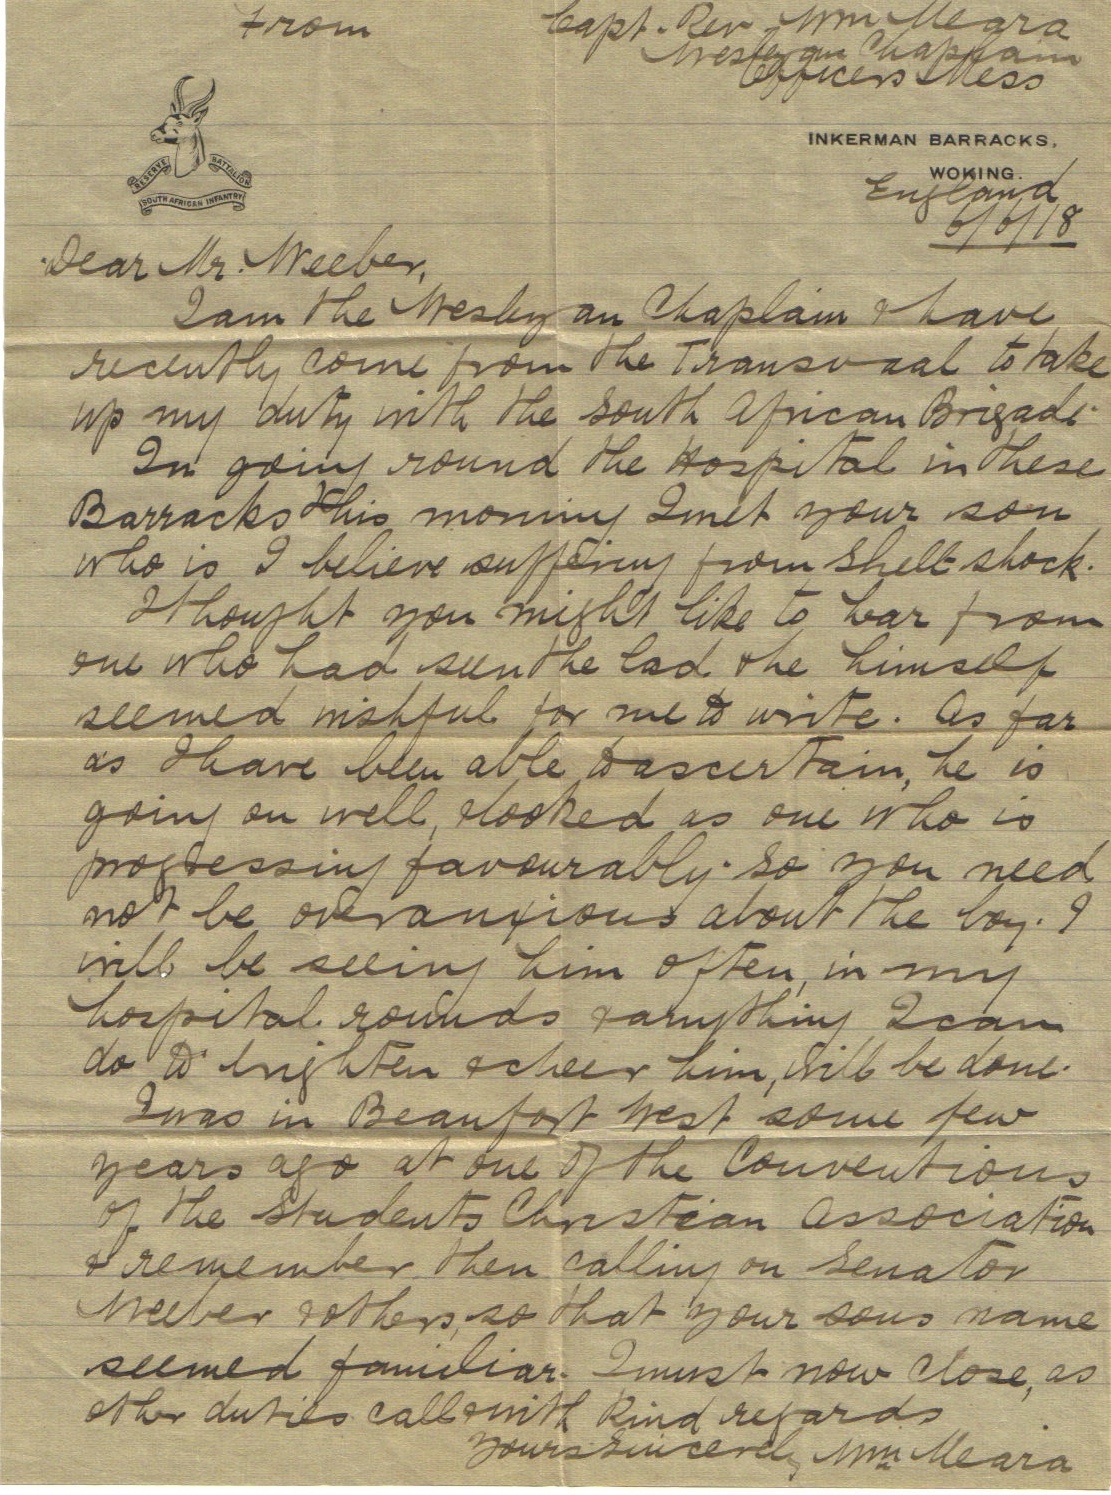 From Capt. Rev. Wm Meara
Wesleyan Chaplain
Officers Mess
RESERVE BATTALION
SOUTH AFRICAN INFANTRY
INKERMAN BARRACKS,
WOKING.
England
6/6/18
Dear Mr. Weeber,
I am the Wesleyan Chaplain & have
recently come from the Transvaal to take
up my duty with the South African Brigade.
In going round the Hospital in these
Barracks this morning I met your son
who is I believe suffering from shell shock.
I thought you might like to hear from
one who had seen the lad & he himself
seemed wishful for me to write. As far
as I have been able to ascertain, he is
going on well, & looked as one who is
progressing favourably. So you need
not be over anxious about the boy. I
will be seeing him often, in my
hospital rounds & anything I can
do to brighten & cheer him, will be done.
I was in Beaufort West some few
years ago at one of the Conventions
of the Students Christian Association
& remember then calling on Senator
Weeber & others, so that your sons name
seemed familiar. I must now close, as
other duties call & with kind regards
Yours Sincerely, Wm Meara